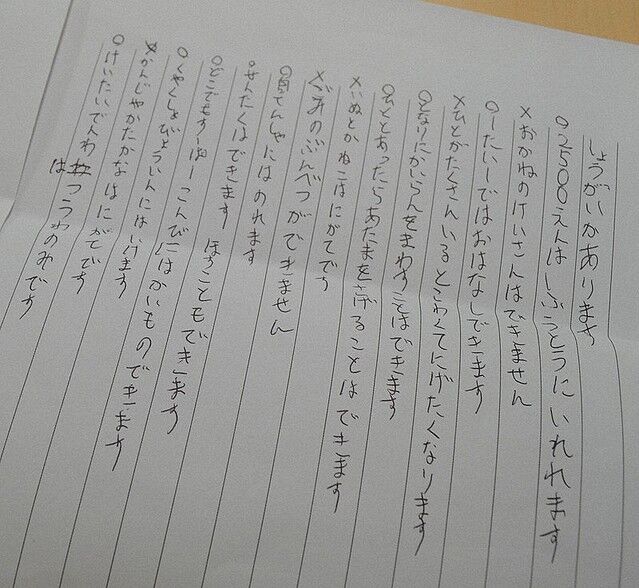 しょうがいかあります
○2500えんはふうとうにいれれます
×おかねのけいさんはできません
○1たい1ではおはなしできます
×ひとがたくさんいるとこわくてにげたくなります
○となりにかいらんをまわすことはできます
○ひととあったらあたまをさげることはできます
×いぬとかねこはにがてです
×ごみのぶんべつができません
○自てんしゃにはのれます
○せんたくはできます ほすこともできます
○どこでもすーぱーこんびにはかいものできます
○くやくしょびょういんにはいけます
×かんじやかたかなはにがてです
○けいたいでんわはつうわのみです